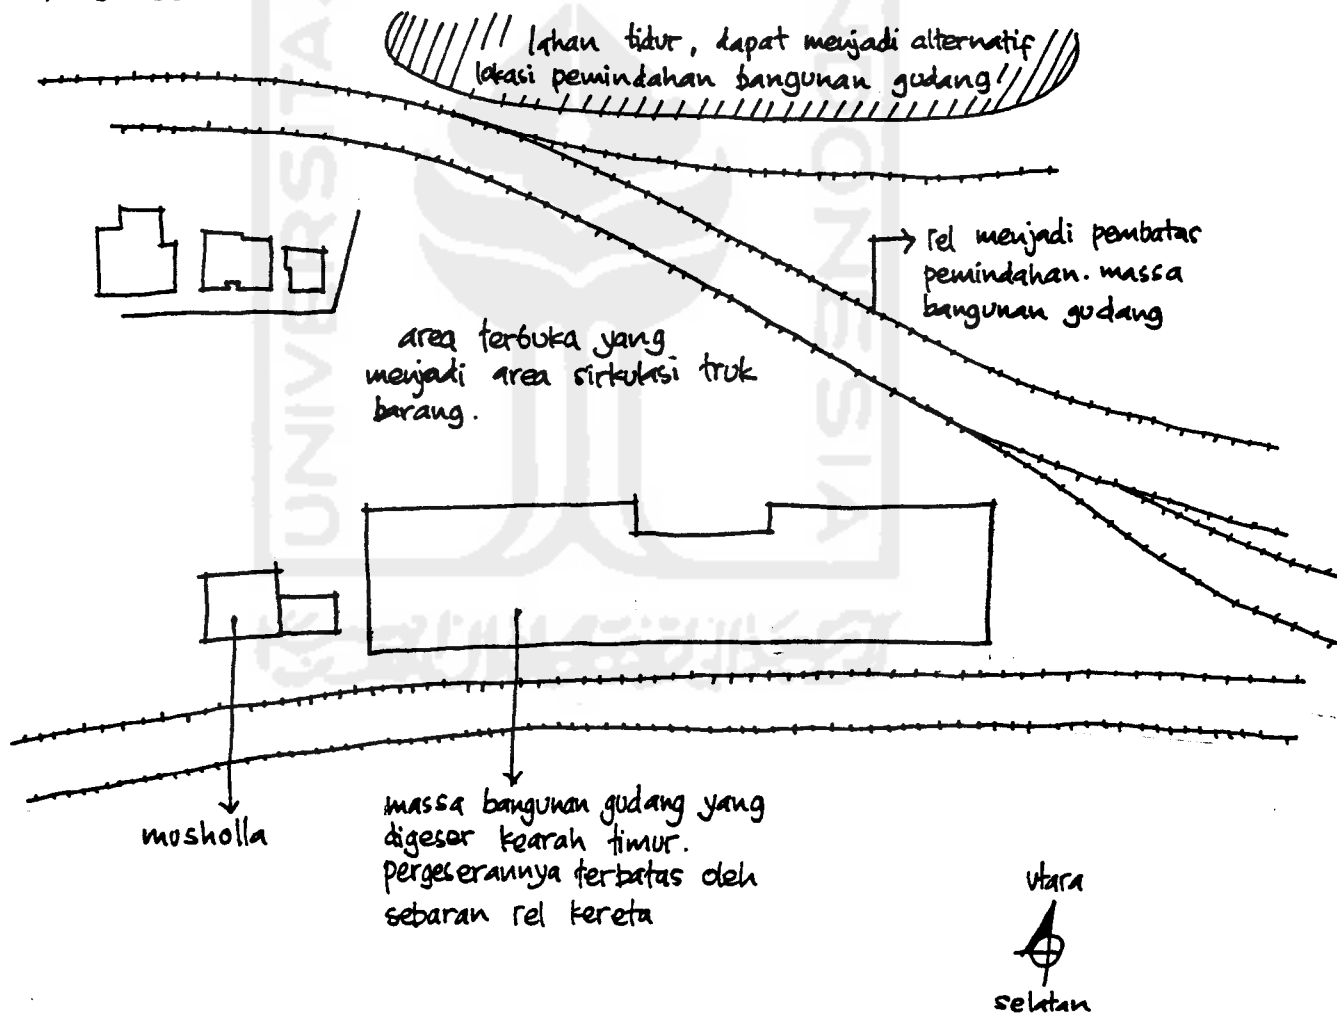 lahan tidur, dapat menjadi alternatif
lokasi pemindahan bangunan gudang
rel menjadi pembatas
pemindahan. massa
bangunan gudang
area terbuka yang
menjadi area sirkulasi truk
barang.
musholla
massa bangunan gudang yang
digeser kearah timur.
pergeserannya terbatas oleh
sebaran rel kereta
utara
selatan
UNIVERSITAS
INDONESIA